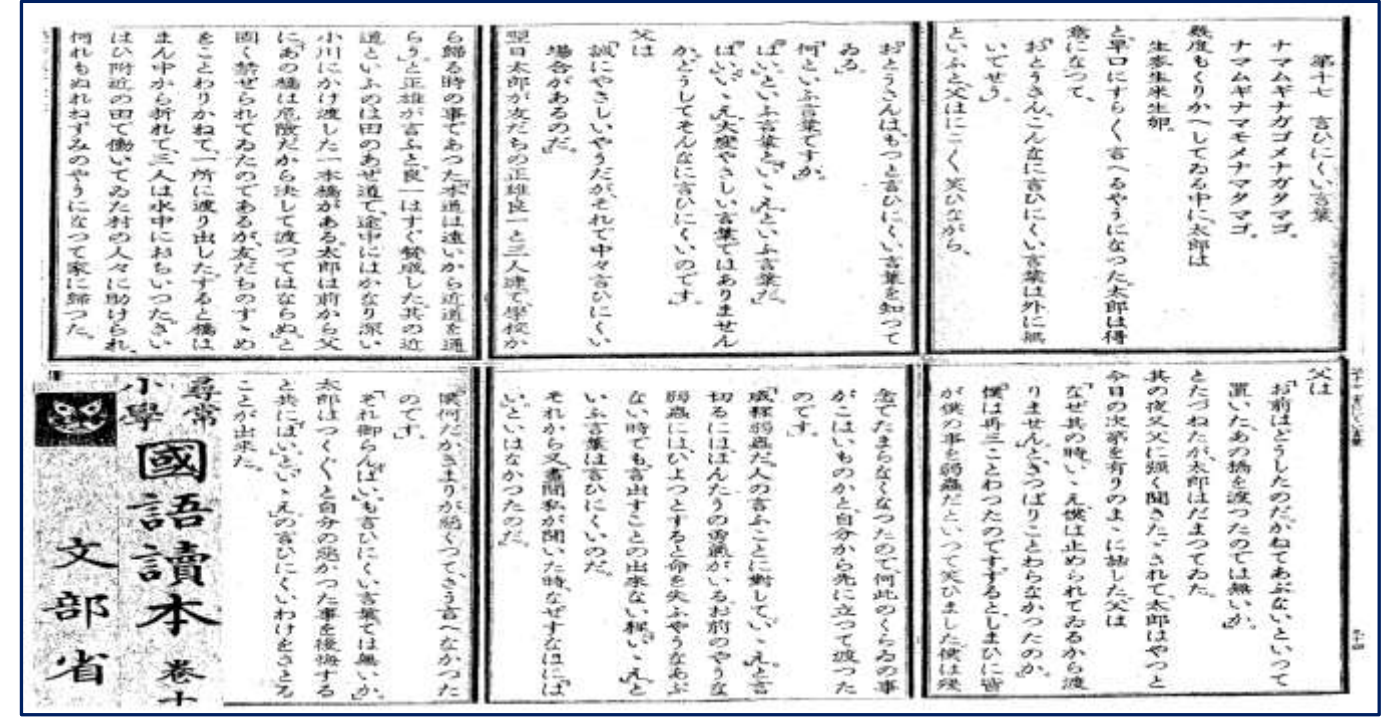 第十七 言ひにくい言葉
ナマムギナガゴメナガタマゴ。
ナマムギナマモメナマタマゴ。
幾度もくりかへしてゐる中に、太郎は
生麥生米生卵。
と早口にすらく言へるやうになつた。太郎は得
意になつて、
「おとうさん、こんなに言ひにくい言葉は外に無
いでせう。」
といふと、父はにこく笑ひながら、
「おとうさんはもつと言ひにくい言葉を知つて
ゐる。」
「何といふ言葉ですか。」
「『はい』といふ言葉と『いゝえ』といふ言葉だ。」
「『はい』『いゝえ』大變やさしい言葉ではありません
か。どうしてそんなに言ひにくいのです。」
父は
「誠にやさしいやうだが、それで中々言ひにくい
場合があるのだ。」
翌日太郎が友だちの正雄良一と三人連で學校か
ら歸る時の事であつた。「本道は遠いから近道を通
らう。」と正雄が言ふと、良一はすぐ賛成した。其の近
道といふのは田のあぜ道で、途中にはかなり深い
小川にかけ渡した一本橋がある。太郎は前から父
に、「あの橋は危險だから決して渡つてはならぬ。」と
固く禁ぜられてゐたのであるが、友だちのすゝめ
をことわりかねて、一所に渡り出した。すると橋は
まん中から折れて、三人は水中におちいつた。さい
はひ附近の田で働いてゐた村の人々に助けられ、
何れもぬれねずみのやうになつて家に歸つた。
父は
「お前はどうしたのだ。かねてあぶないといつて
置いた、あの橋を渡つたのでは無いか。」
とたづねたが、太郎はだまつてゐた。
其の夜父に強く聞きたゞされて、太郎はやつと
今日の次第を有りのまゝに話した。父は
「なぜ其の時、『いゝえ、僕は止められてゐるから渡
りません。』ときつぱりことわらなかつたのか。」
「僕は再三ことわつたのです。するとしまひに皆
が僕の事を弱蟲だといつて笑ひました。僕は殘
念でたまらなくなつたので、何此のくらゐの事
がこはいものかと、自分から先に立つて渡つた
のです。」
「成程弱蟲だ。人の言ふことに對して、『いゝえ』と言
切るにはほんたうの勇氣がいる。お前のやうな
弱蟲にはひよつとすると命を失ふやうなあぶ
ない時でも、言出すことの出來ない程、『いゝえ』と
いふ言葉は言ひにくいのだ。
それから又晝間私が聞いた時、なぜすなほに『は
い』といはなかつたのだ。」
「僕何だかきまりが惡くつて、さう言へなかつた
のです。」
「それ御らん。『はい』も言ひにくい言葉では無いか。」
太郎はつくぐと自分の惡かつた事を後悔する
と共に、「『はい』と『いゝえ』」の言ひにくいわけをさとる
ことが出來た。
尋常
小學
國語讀本 卷十
文部省